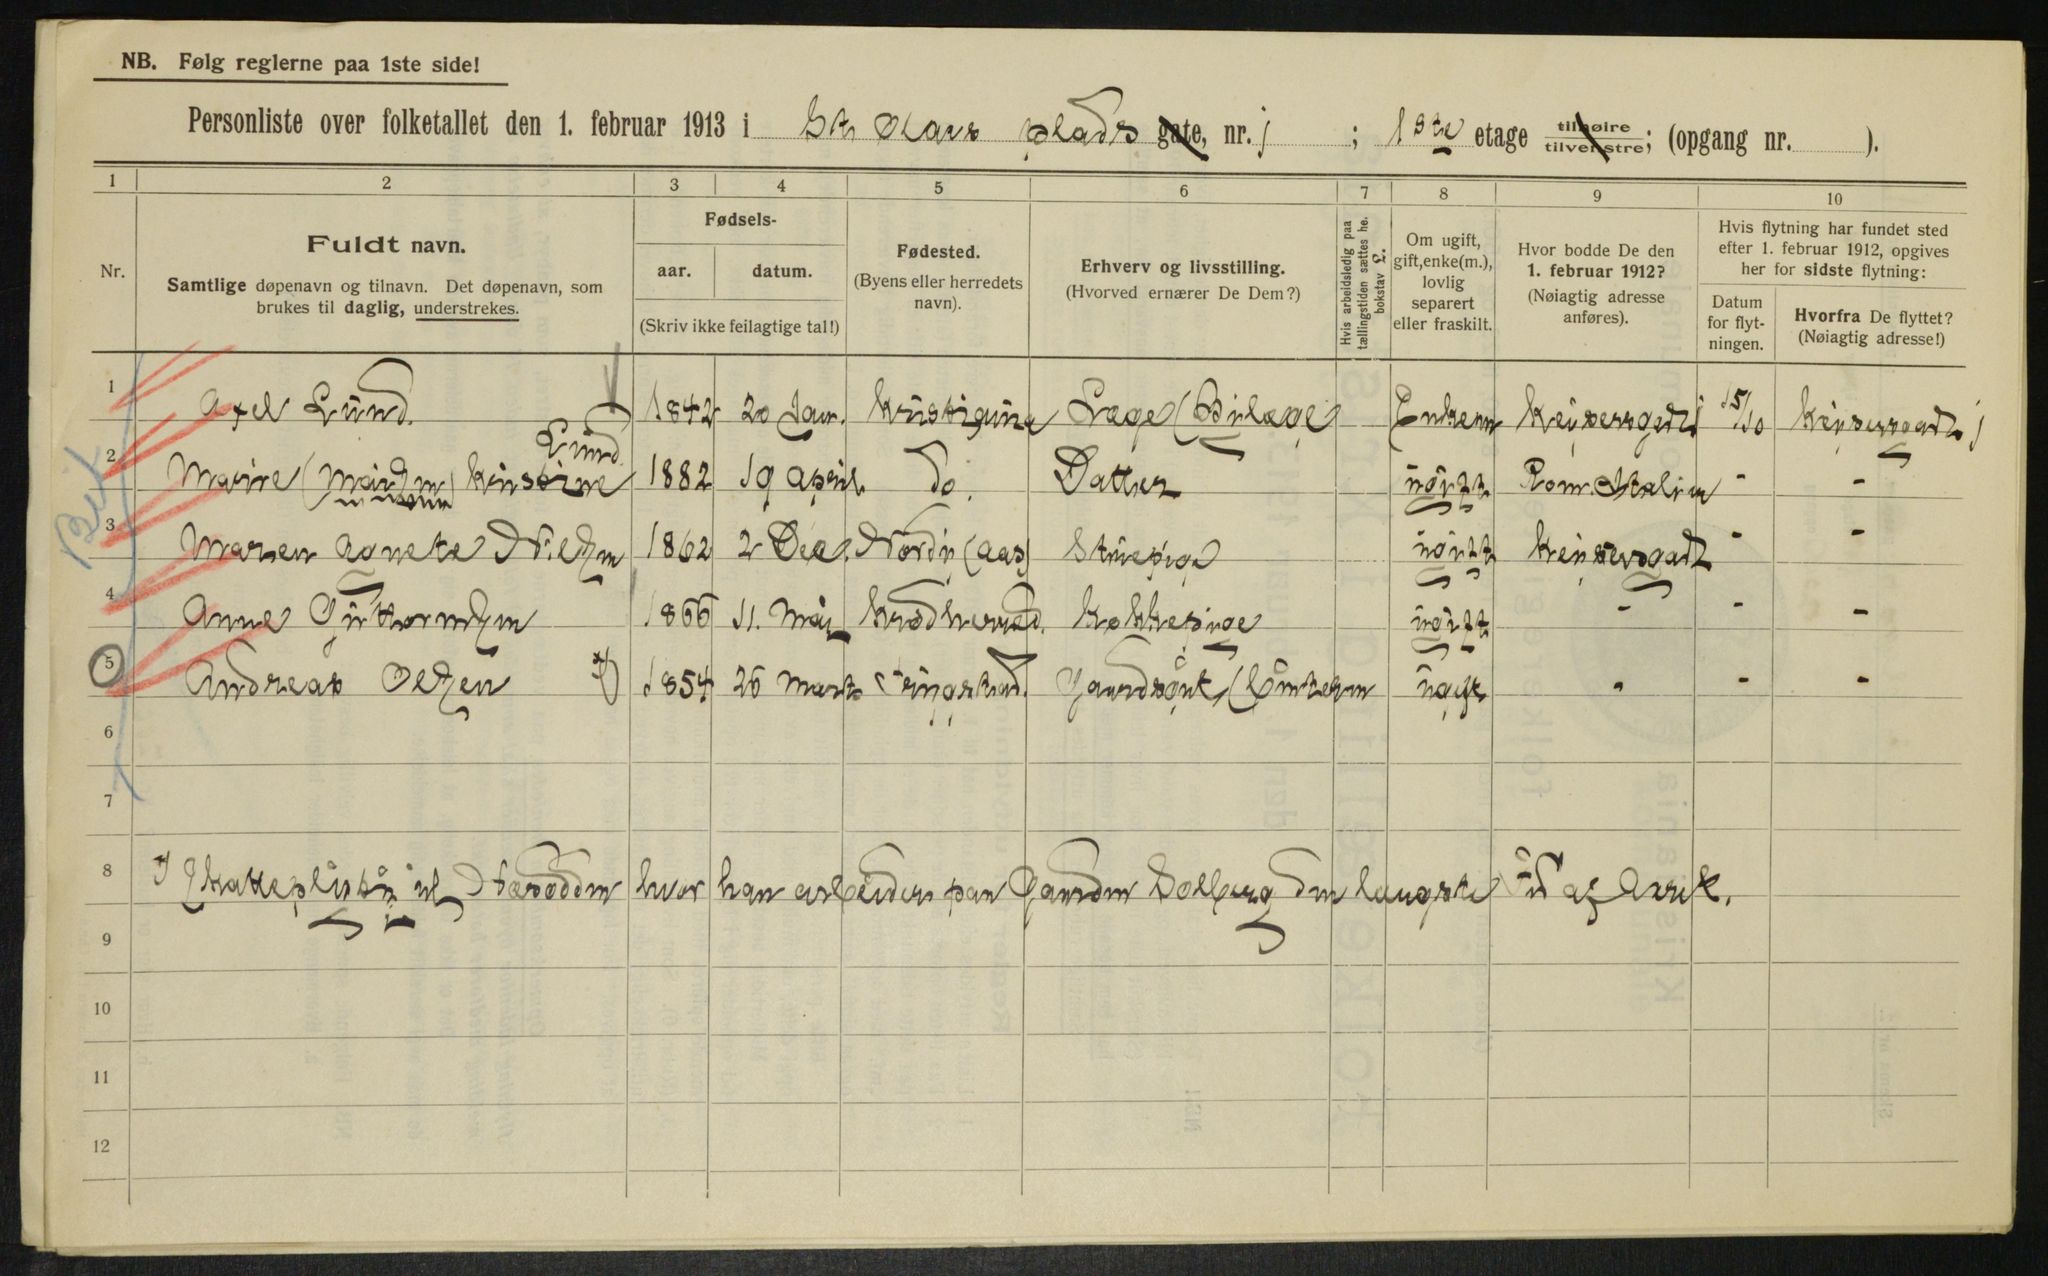 NB. Følg reglerne paa 1ste side!
Personliste over folketallet den 1. februar 1913 i St Olavs plads gate, nr. 1 ; 1ste etage tilhøire tilvenstre; (opgang nr. ).
1 2 3 4 5 6 7 8 9 10
Nr.
Fuldt navn.
Samtlige døpenavn og tilnavn. Det døpenavn, som
brukes til daglig, understrekes.
Fødsels-
aar. datum.
(Skriv ikke feilagtige tal!)
Fødested.
(Byens eller herredets
navn).
Erhverv og livsstilling.
(Hvorved ernærer De Dem?)
Hvis arbeidsledig paa
tællingstiden sættes he.
bokstav L.
Om ugift,
gift, enke(m.),
lovlig
separert
eller fraskilt.
Hvor bodde De den
1. februar 1912?
(Nøiagtig adresse
anføres).
Hvis flytning har fundet sted
efter 1. februar 1912, opgives
her for sidste flytning:
Datum
for flyt-
ningen.
Hvorfra De flyttet?
(Nøiagtig adresse!)
1 Axel Lund. 1842 20 Jan. Kristiania Læge (Bilæge) Enkem Keisersgade 1 15/10 Keisersgade 1
Lund
2 Marie Kirstine 1882 19 April do. Datter ugift Rom. Italien - -
3 Maren Agnete Nielsen 1862 2 Dec. Nordby (Aas) Stuepige ugift Keisersgade - -
4 Anne Guttormsen 1866 11. Mai Krødherred. Kokkepige ugift - - -
5 Andreas Olsen *) 1854 26 Marts Ringstad. Gaardsgut ugift - - -
6
7
8 Skattepligtig til Næsodden hvor han arbeider paa Gaarden Solberg den længste Tid af Aaret.
9
10
11
12